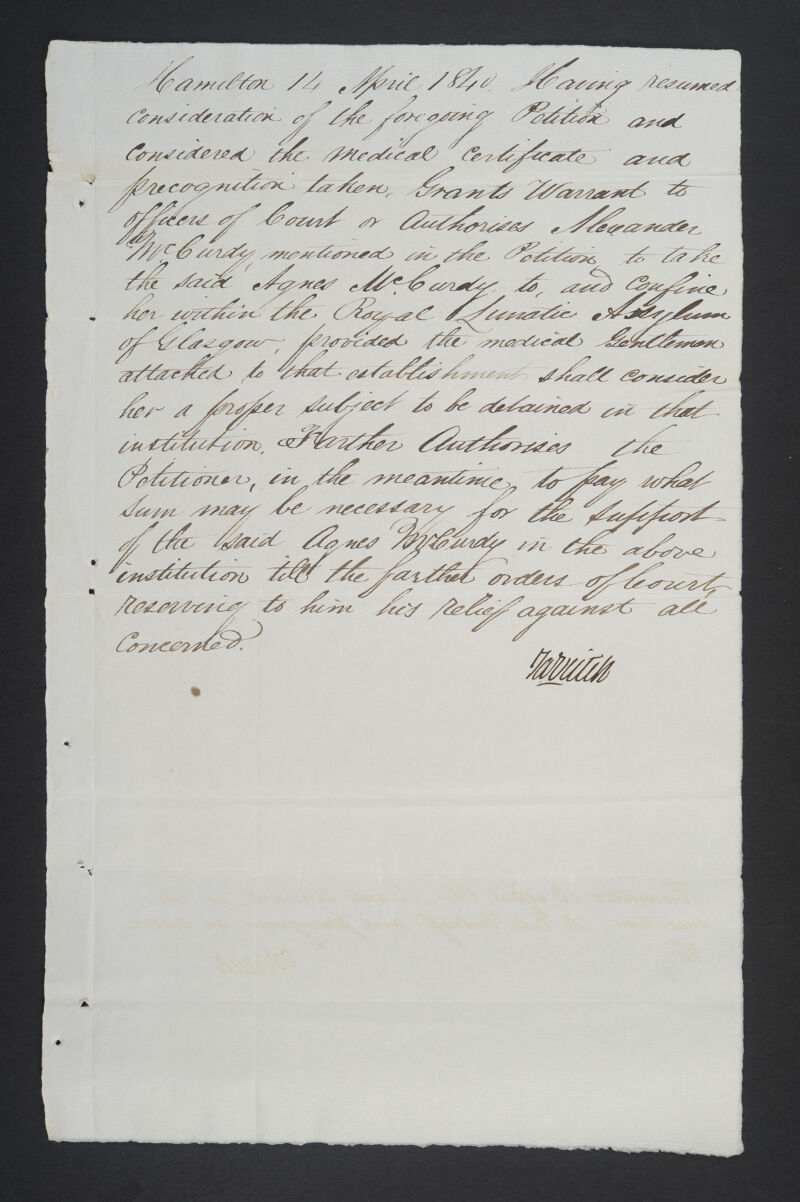 Hamilton 14 April 1840. Having resumed
consideration of the foregoing Petition and
considered the medical certificate and
precognition taken, Grants Warrant to
officers of Court or Authorises Alexander
McCurdy, mentioned in the Petition, to take
the said Agnes McCurdy to, and confine
her within the Royal Lunatic Asylum
of Glasgow, provided the medical Gentlemen
attached to that establishment shall consider
her a proper subject to be detained in that
institution. Farther Authorises the
Petitioner, in the meantime, to pay what
sum may be necessary for the support
of the said Agnes McCurdy in the above
institution till the farther orders of Court,
reserving to him his relief against all
concerned.